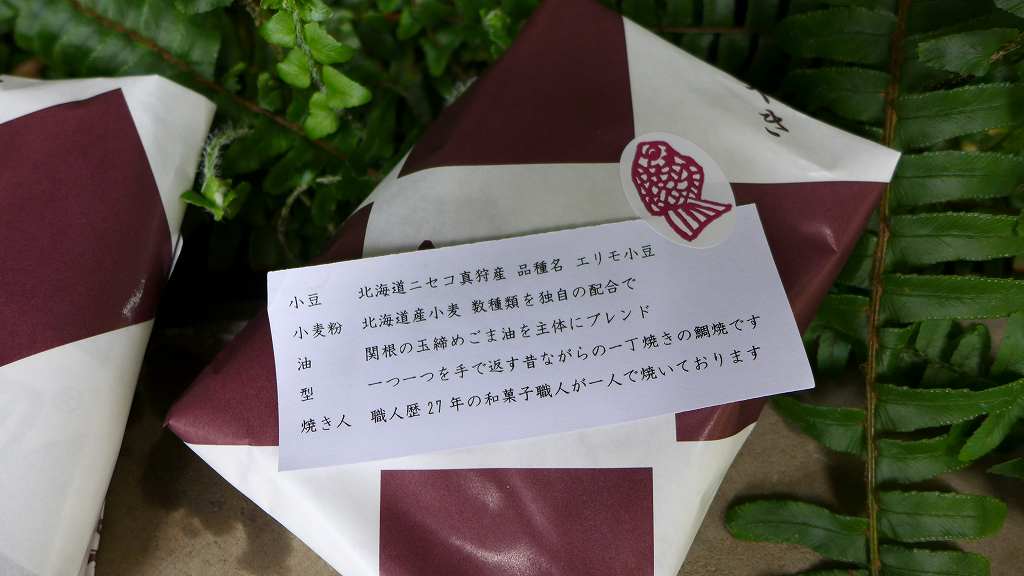 小豆 北海道ニセコ真狩産 品種名 エリモ小豆
小麦粉 北海道産小麦 数種類を独自の配合で
油 関根の玉締めごま油を主体にブレンド
型 一つ一つを手で返す昔ながらの一丁焼きの鯛焼です
焼き人 職人歴27年の和菓子職人が一人で焼いております